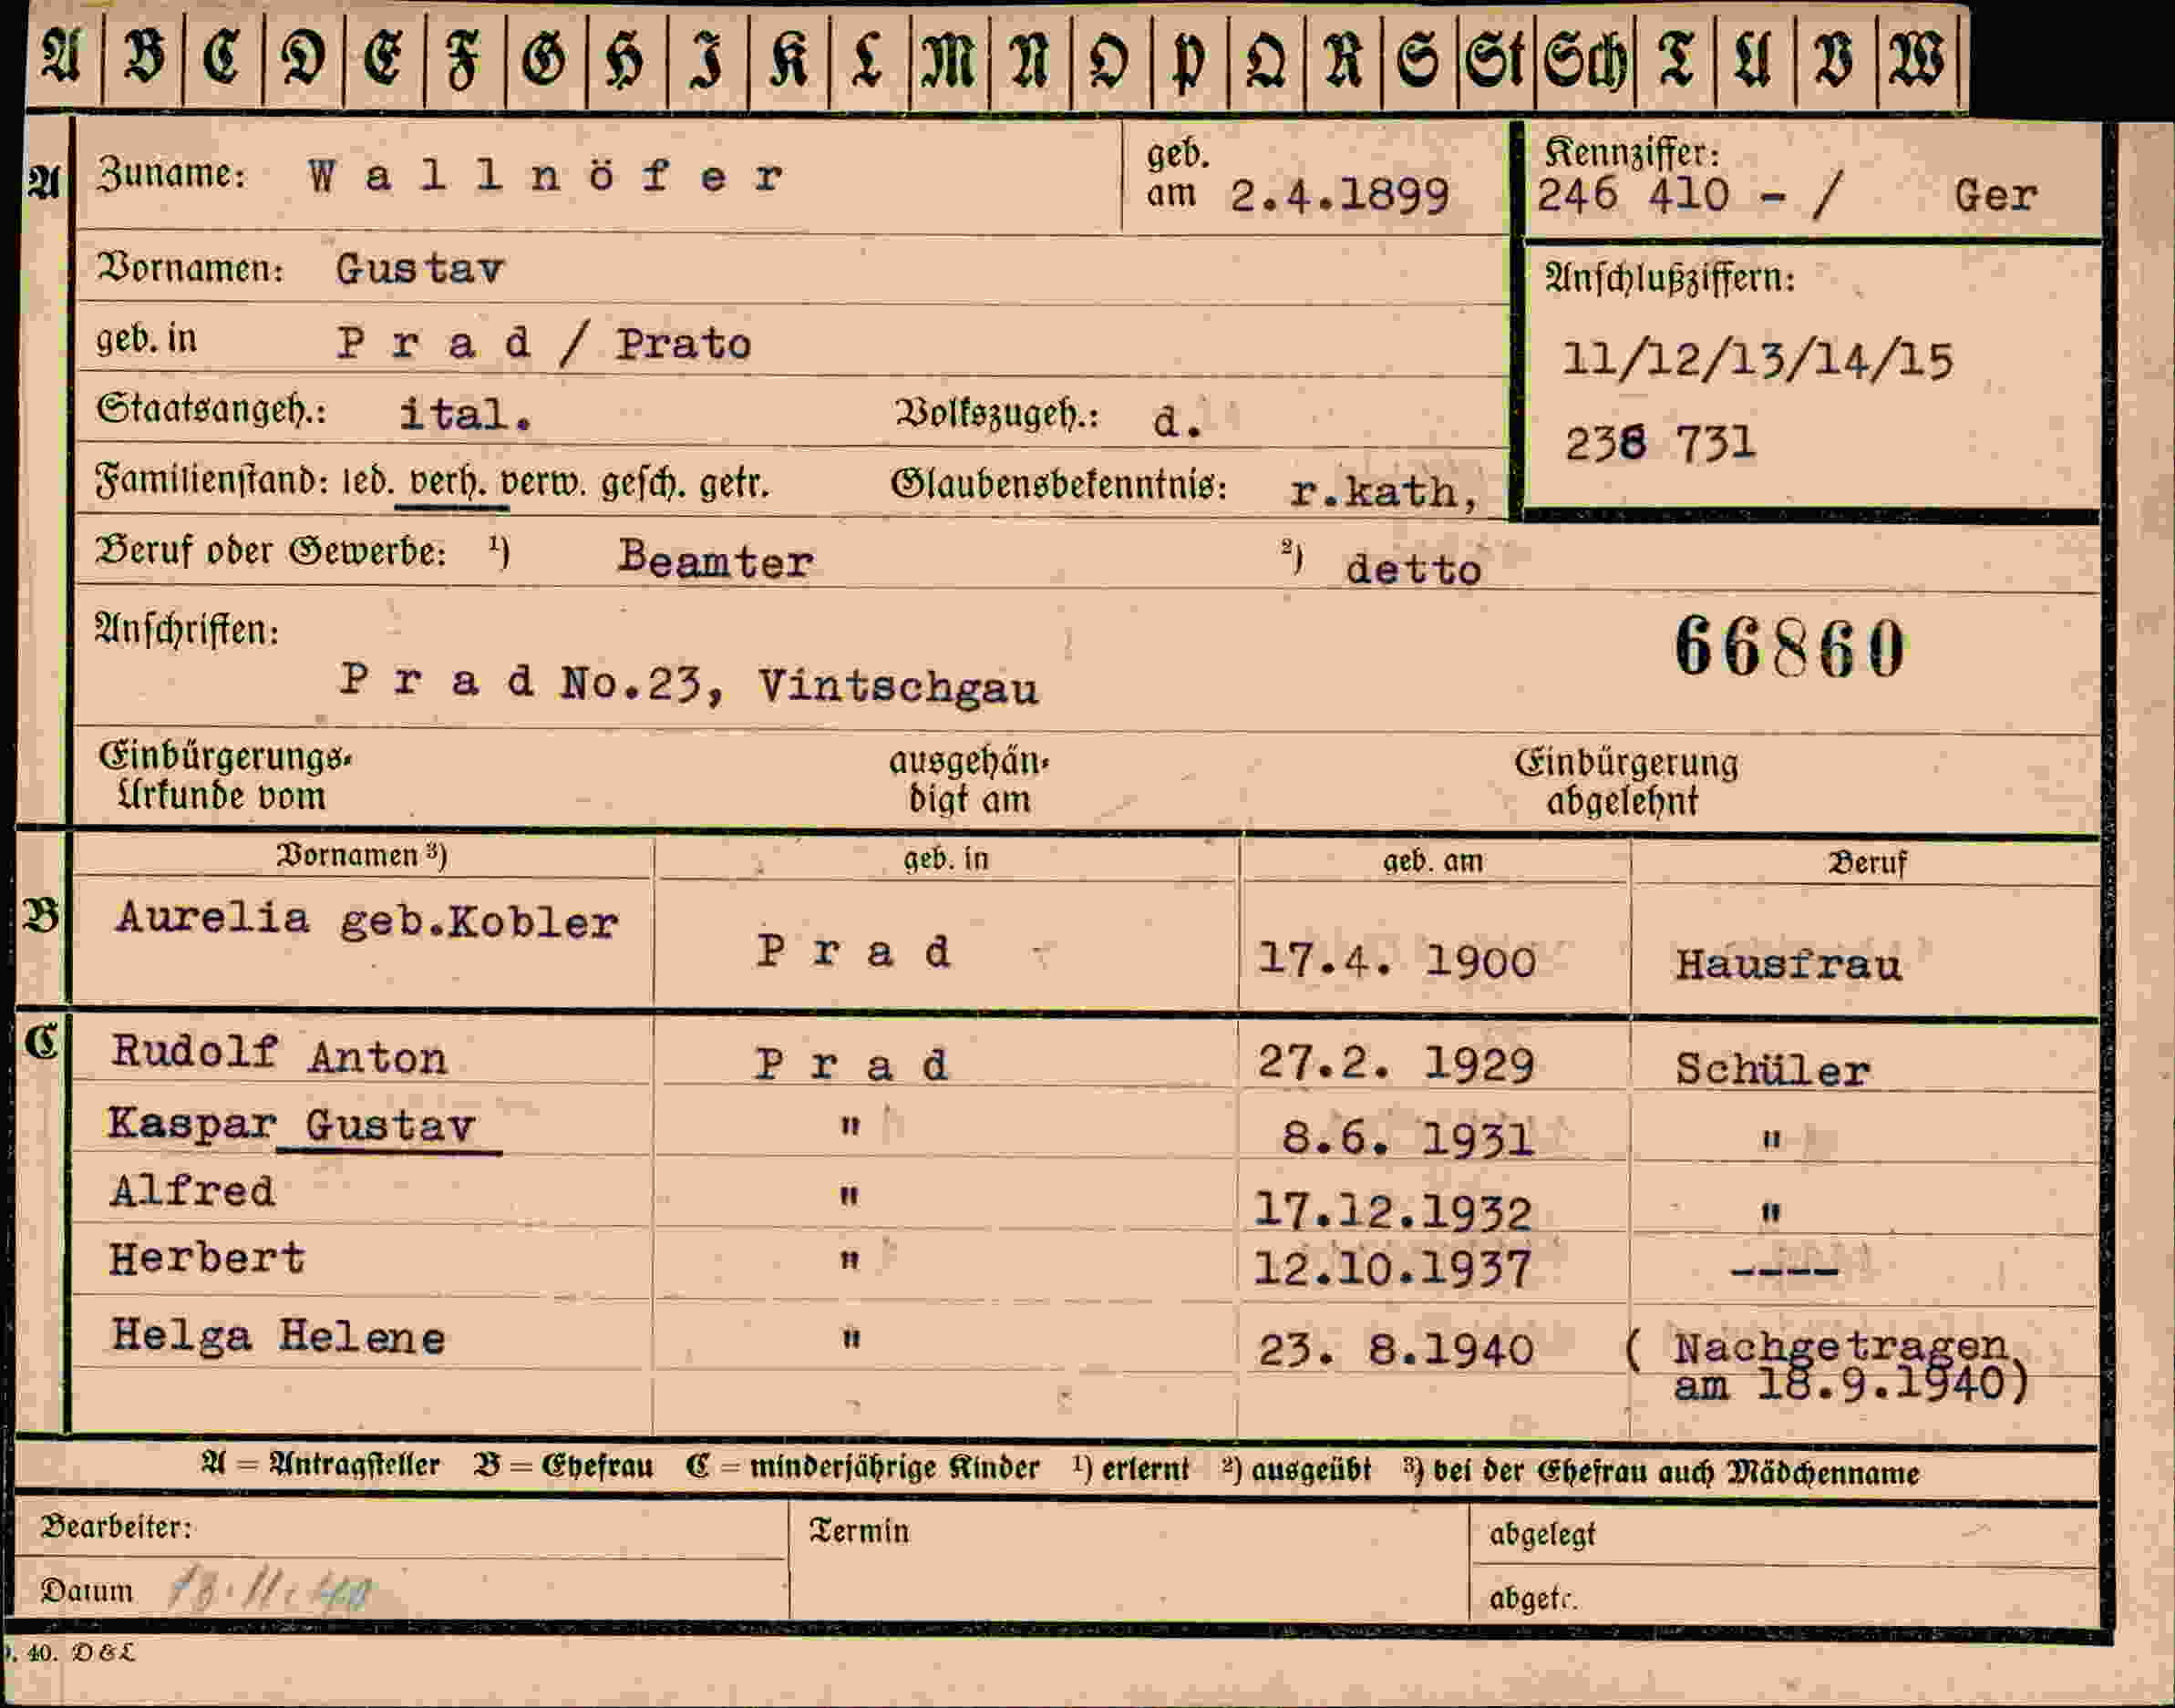 A B C D E F G H I K L M N O P Q R S St Sch T U V W
A Zuname: Wallnöfer geb. am 2.4.1899 Kennziffer:
246 410 - / Ger
Vornamen: Gustav Anschlußziffern:
geb. in Prad / Prato 11/12/13/14/15
Staatsangeh.: ital. Volkszugeh.: d. 238 731
Familienstand: led. verh. verw. gesch. getr. Glaubensbekenntnis: r.kath,
Beruf oder Gewerbe: ¹) Beamter ²) detto
Anschriften: 66860
Prad No.23, Vintschgau
Einbürgerungs- ausgehän- Einbürgerung
Urkunde vom digt am abgelehnt
Vornamen ³) geb. in geb. am Beruf
B Aurelia geb.Kobler Prad 17.4. 1900 Hausfrau
C Rudolf Anton Prad 27.2. 1929 Schüler
Kaspar Gustav " 8.6. 1931 "
Alfred " 17.12.1932 "
Herbert " 12.10.1937 ----
Helga Helene " 23. 8.1940 ( Nachgetragen
am 18.9.1940)
A = Antragsteller B = Ehefrau C = minderjährige Kinder ¹) erlernt ²) ausgeübt ³) bei der Ehefrau auch Mädchenname
Bearbeiter: Termin abgelegt
Datum abgetr.
40. D & L